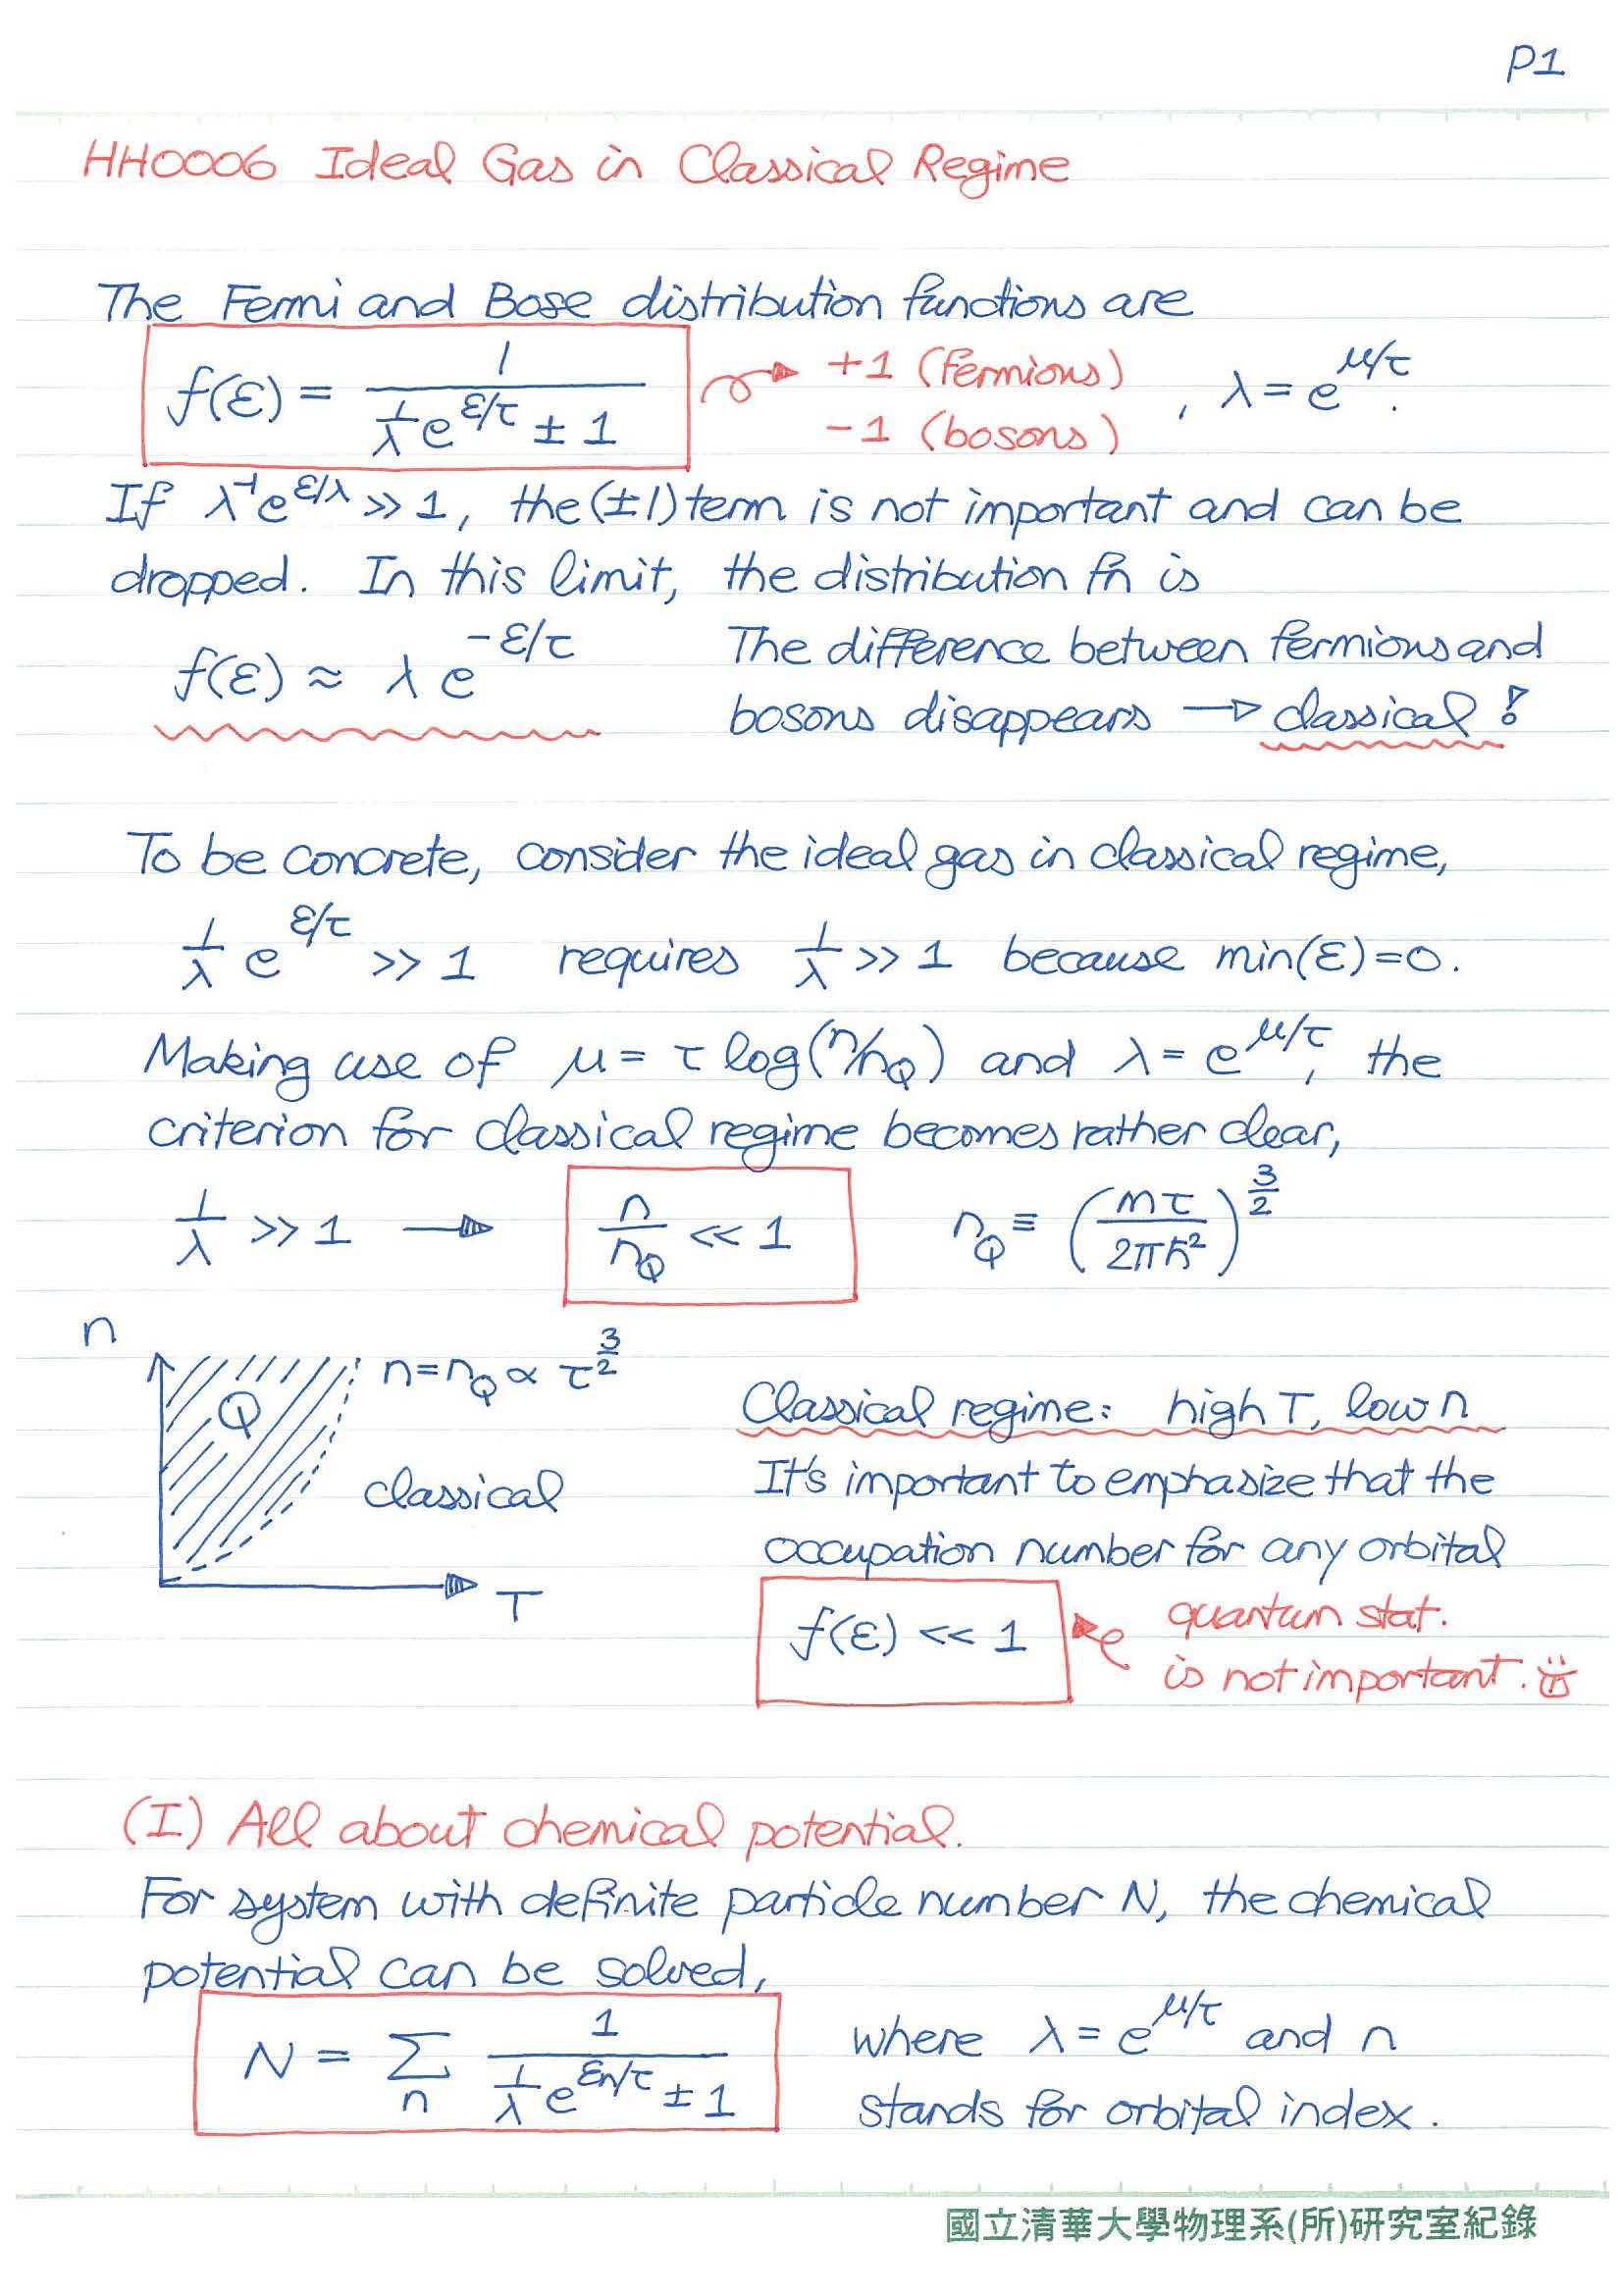 P1
HH0006 Ideal Gas in Classical Regime
The Fermi and Bose distribution functions are
f(ε) = 1 / (1/λ e^{ε/τ} ± 1) +1 (fermions) -1 (bosons) , λ = e^{μ/τ}.
If λ⁻¹e^{ε/λ} >> 1, the (±1) term is not important and can be
dropped. In this limit, the distribution fn is
f(ε) ≈ λ e^{-ε/τ}
The difference between fermions and
bosons disappears → classical!
To be concrete, consider the ideal gas in classical regime,
1/λ e^{ε/τ} >> 1 requires 1/λ >> 1 because min(ε)=0.
Making use of μ = τ log(n/n_Q) and λ = e^{μ/τ}, the
criterion for classical regime becomes rather clear,
1/λ >> 1 → n/n_Q << 1 n_Q ≡ (mτ/2πℏ²)^{3/2}
n
n=n_Q ∝ τ^{3/2}
Q
classical
T
Classical regime: high T, low n
It's important to emphasize that the
occupation number for any orbital
f(ε) << 1
quantum stat.
is not important.
(I) All about chemical potential.
For system with definite particle number N, the chemical
potential can be solved,
N = Σ_n 1 / (1/λ e^{εn/τ} ± 1)
where λ = e^{μ/τ} and n
stands for orbital index.
國立清華大學物理系(所)研究室紀錄